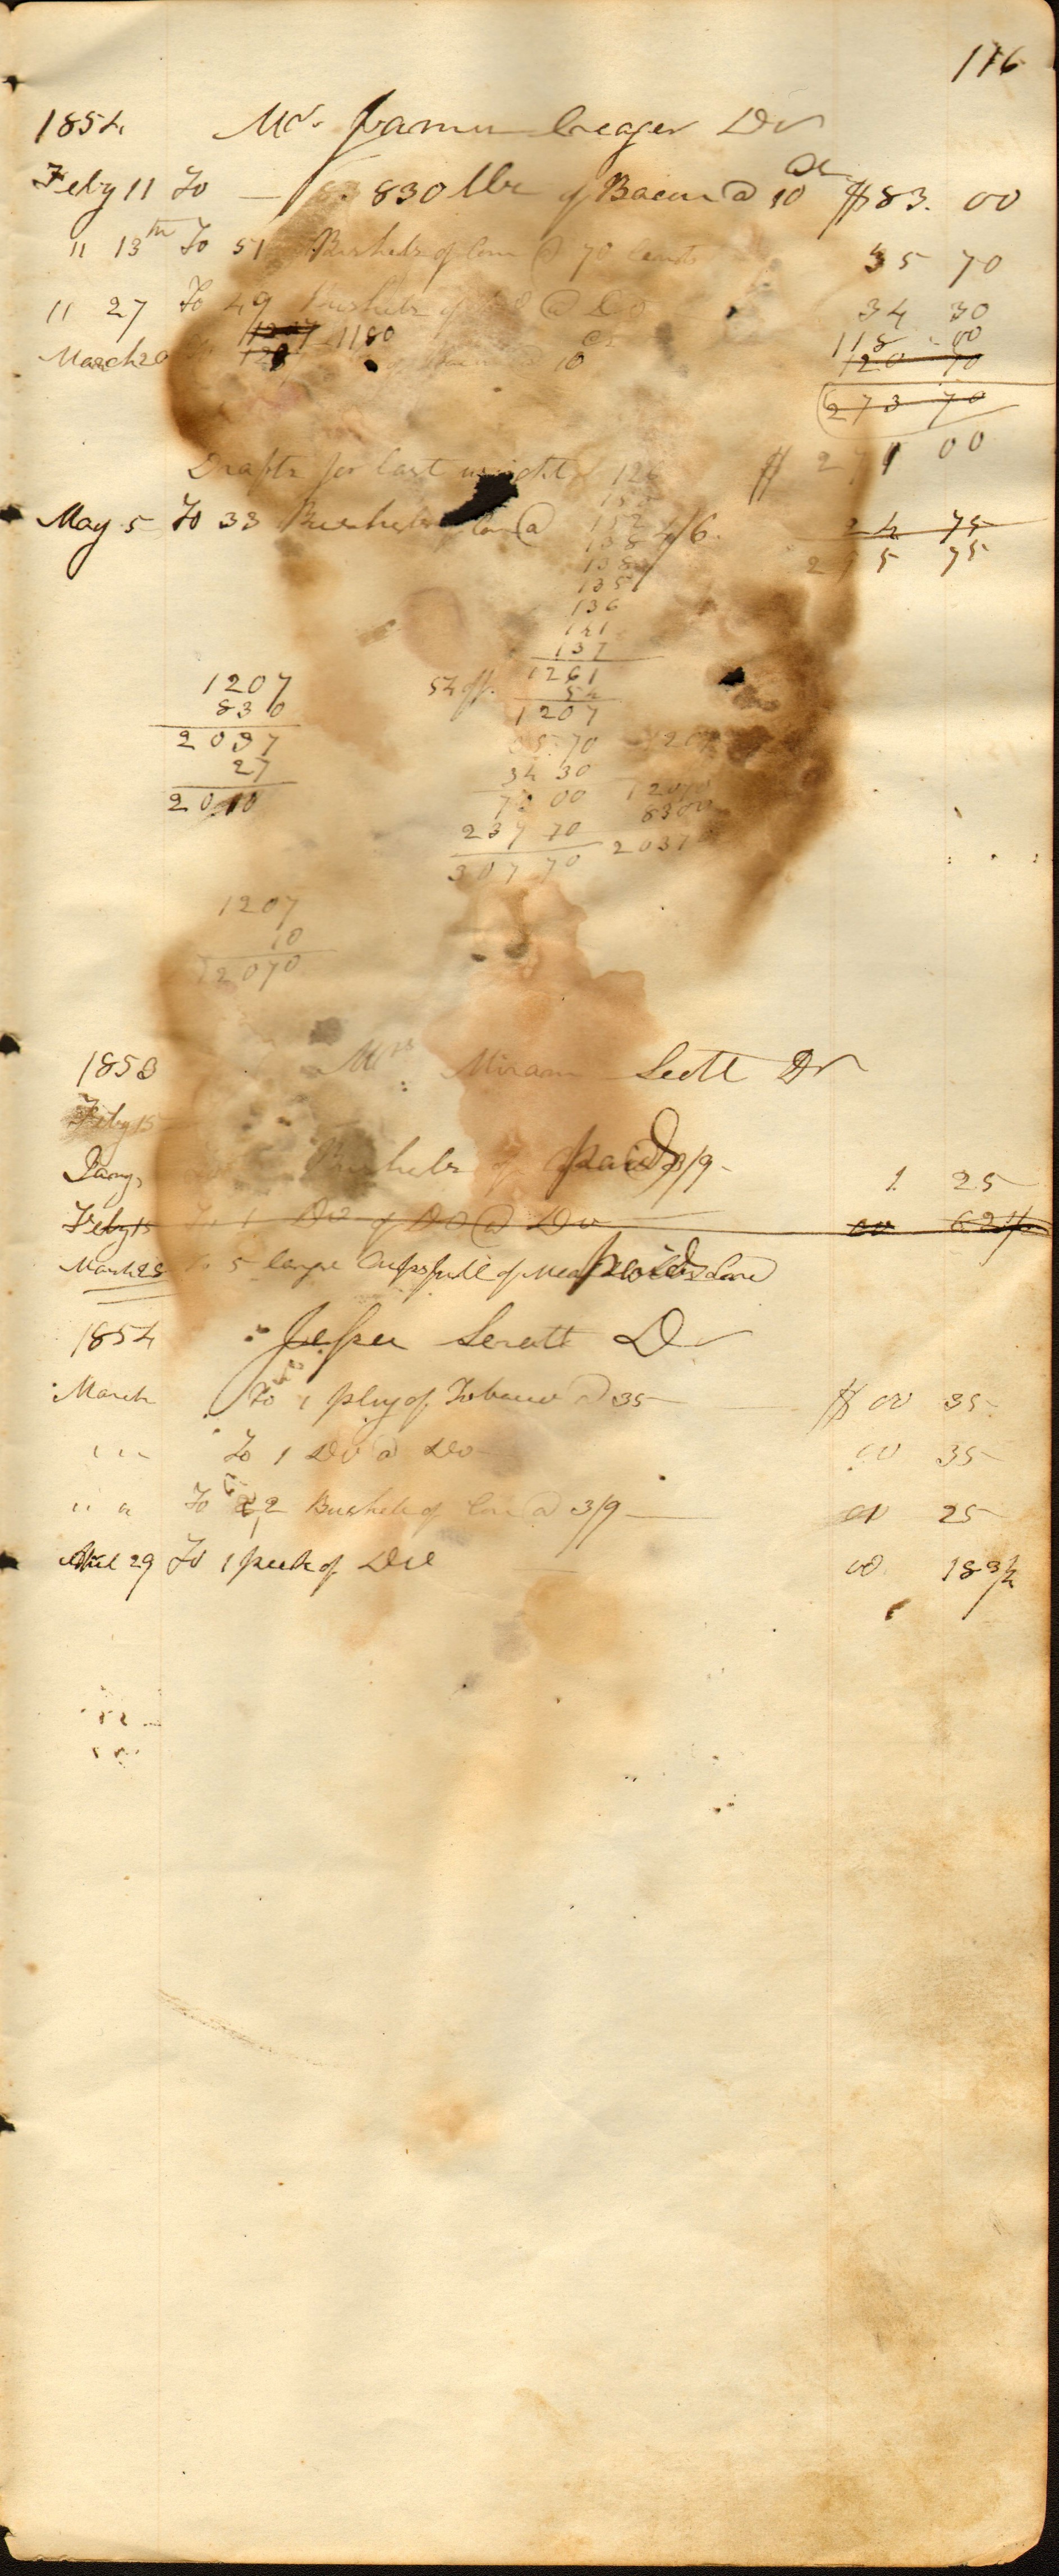 116
1854 Mr. James Creager Dr
Feby 11 To 830 lbs of Bacon @ 10 cts $83. 00
" 13th To 51 Bushels of Corn @ 70 cents 35 70
" 27 To 49 Bushels of Do @ Do 34 30
1207 1180 cts 118 00
March 20 120 of Bacon 10 120 70
273 70
Drafts for last weight 126 $ 271 00
152
May 5 To 33 Bushels of Corn @ 4/6. 24 75
138 295 75
138
135
136
141
137
1207 54 off. 1261
830 54
2037 1207
27 35.70 1207
2010 34 30
70 00 12070
237 70 8300
307 70 20370
1207
10
12070
1853 Mrs Miriam Scott Dr
Feby 15
Jany, Bushels of paid 3/9 1 25
Feby 15 To 1 Do of Do @ Do 00 62 1/2
March 25 To 5 large Cupsfull of Meal paid
1854 Jesse Scratt Dr
March To 1 plug of Tobacco @ 35 $ 00 35
" " To 1 Do @ Do 00 35
" " To 2 Bushels of Corn @ 3/9 01 25
29 To 1 peck of Do 00 18 3/4